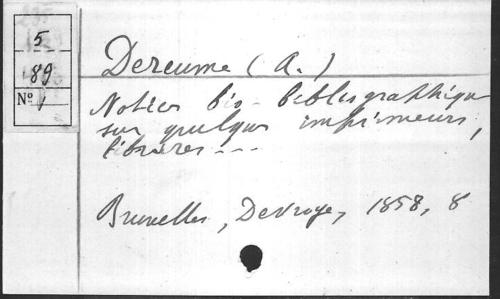 5
89
Nº 1
Dereume (A.)
Notices bio-bibliographiques
sur quelques imprimeurs,
libraires---
Bruxelles, Devroye, 1858, 8